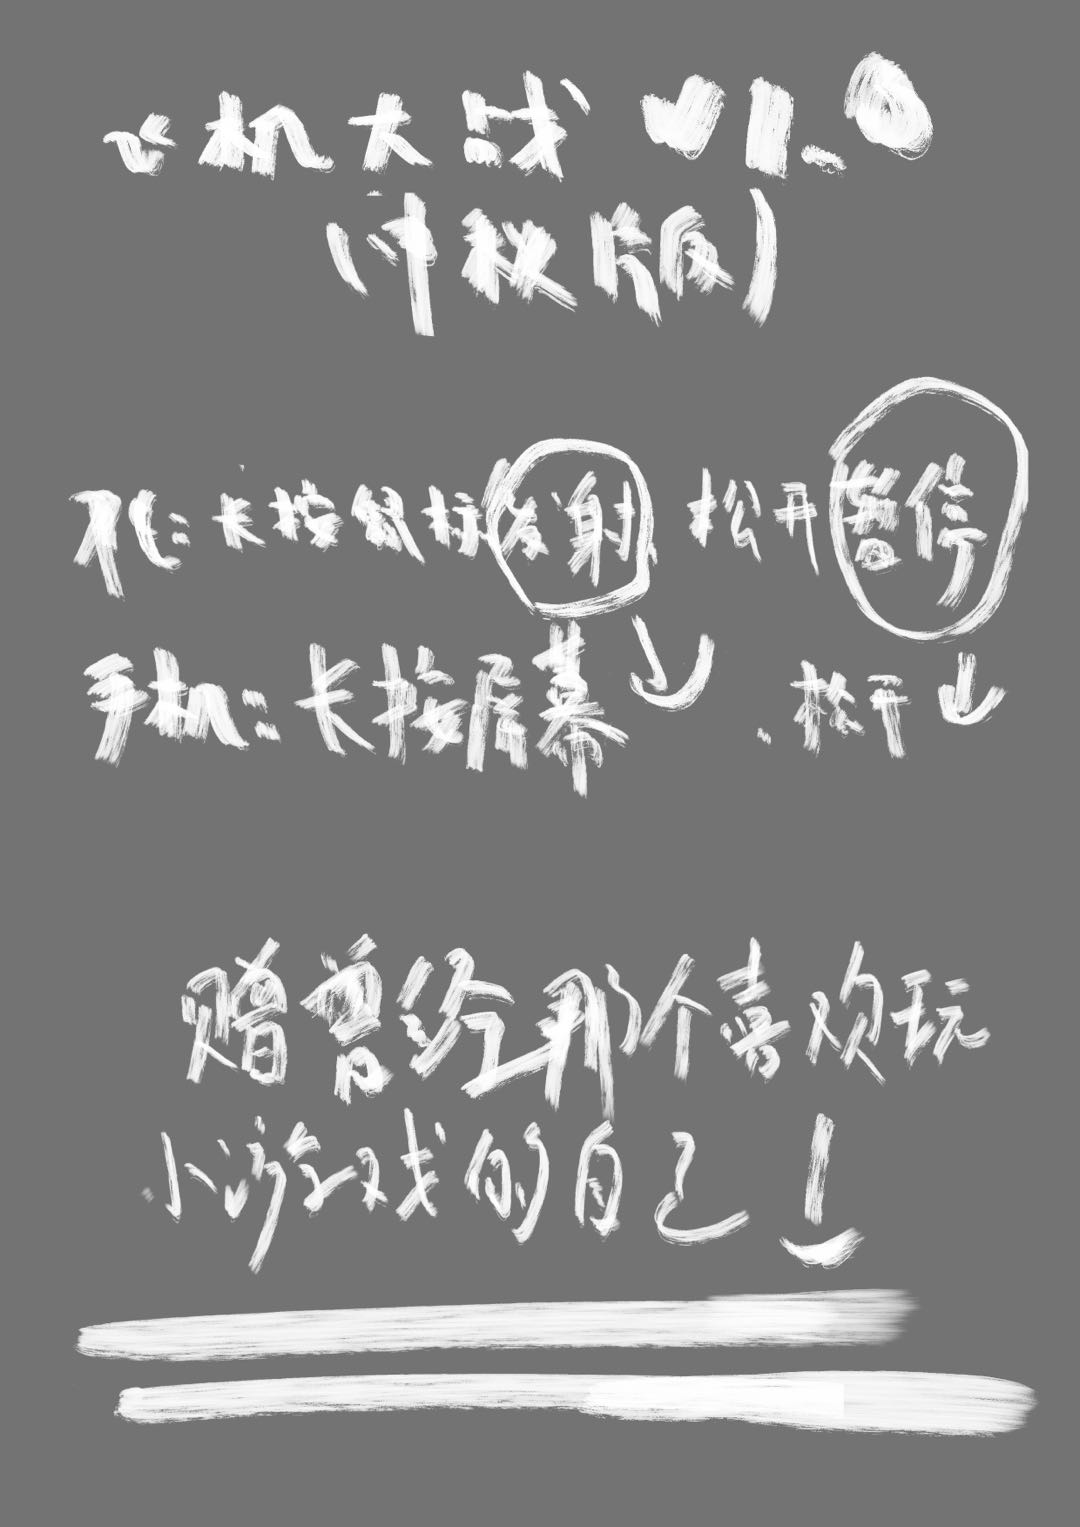 飞机大战 V1.0
(神秘版)
长按鼠标发射 松开暂停
手机:长按屏幕↓、松开↓
赠曾经那个喜欢玩
小游戏的自己!